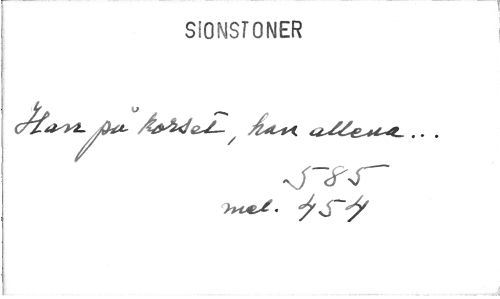 SIONSTONER
Han på korset, han allena...
585
mel. 454